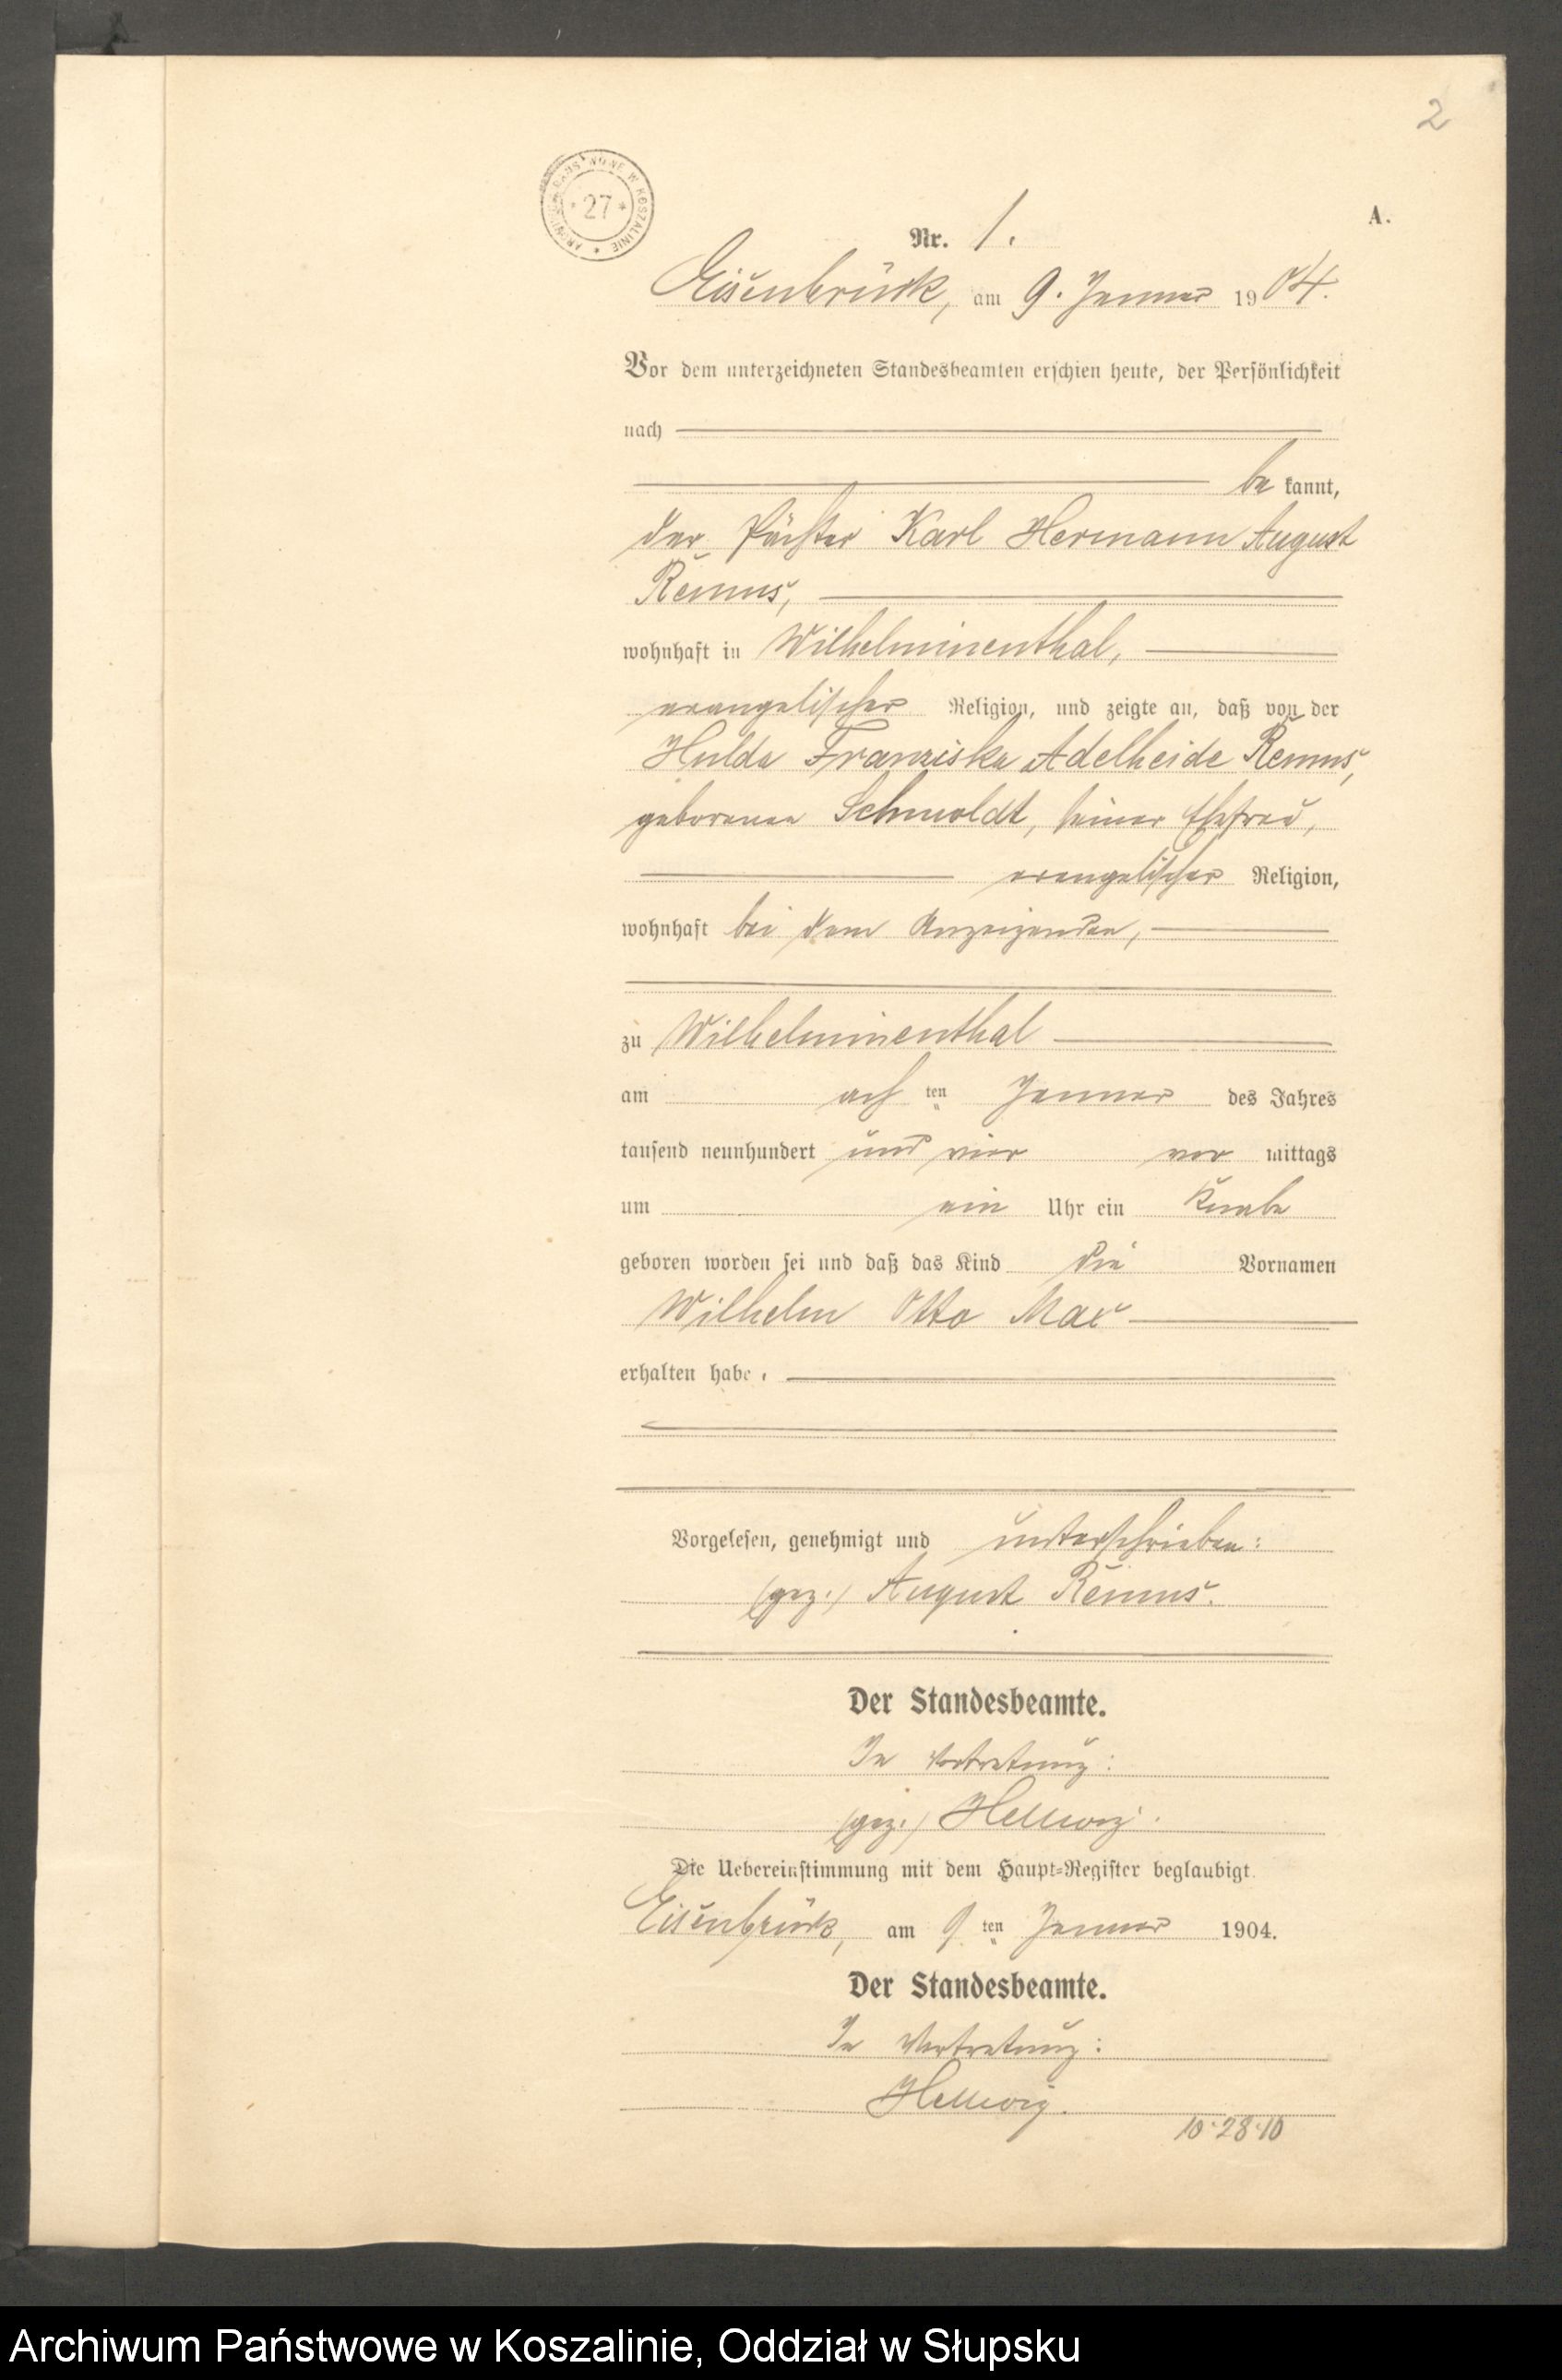 2
ARCHIWUM PAŃSTWOWE W KOSZALINIE
* 27 *
A.
Nr. 1.
Eisenbrück, am 9. Januar 1904.
Vor dem unterzeichneten Standesbeamten erschien heute, der Persönlichkeit
nach
be kannt,
der Pächter Karl Hermann August
Remus,
wohnhaft in Wilhelminenthal,
evangelischer Religion, und zeigte an, daß von der
Hulda Franziska Adelheide Remus,
geborenen Schmoldt, seiner Ehefrau,
evangelischer Religion,
wohnhaft bei dem Anzeigenden,
zu Wilhelminenthal
am ach ten Januar des Jahres
tausend neunhundert und vier vor mittags
um ein Uhr ein Knabe
geboren worden sei und daß das Kind die Vornamen
Wilhelm Otto Max
erhalten habe.
Vorgelesen, genehmigt und unterschrieben:
(gez.) August Remus.
Der Standesbeamte.
In Vertretung:
(gez.) Hellwig.
Die Uebereinstimmung mit dem Haupt-Register beglaubigt.
Eisenbrück, am 9 ten Januar 1904.
Der Standesbeamte.
In Vertretung:
Hellwig.
10·28·10
Archiwum Państwowe w Koszalinie, Oddział w Słupsku